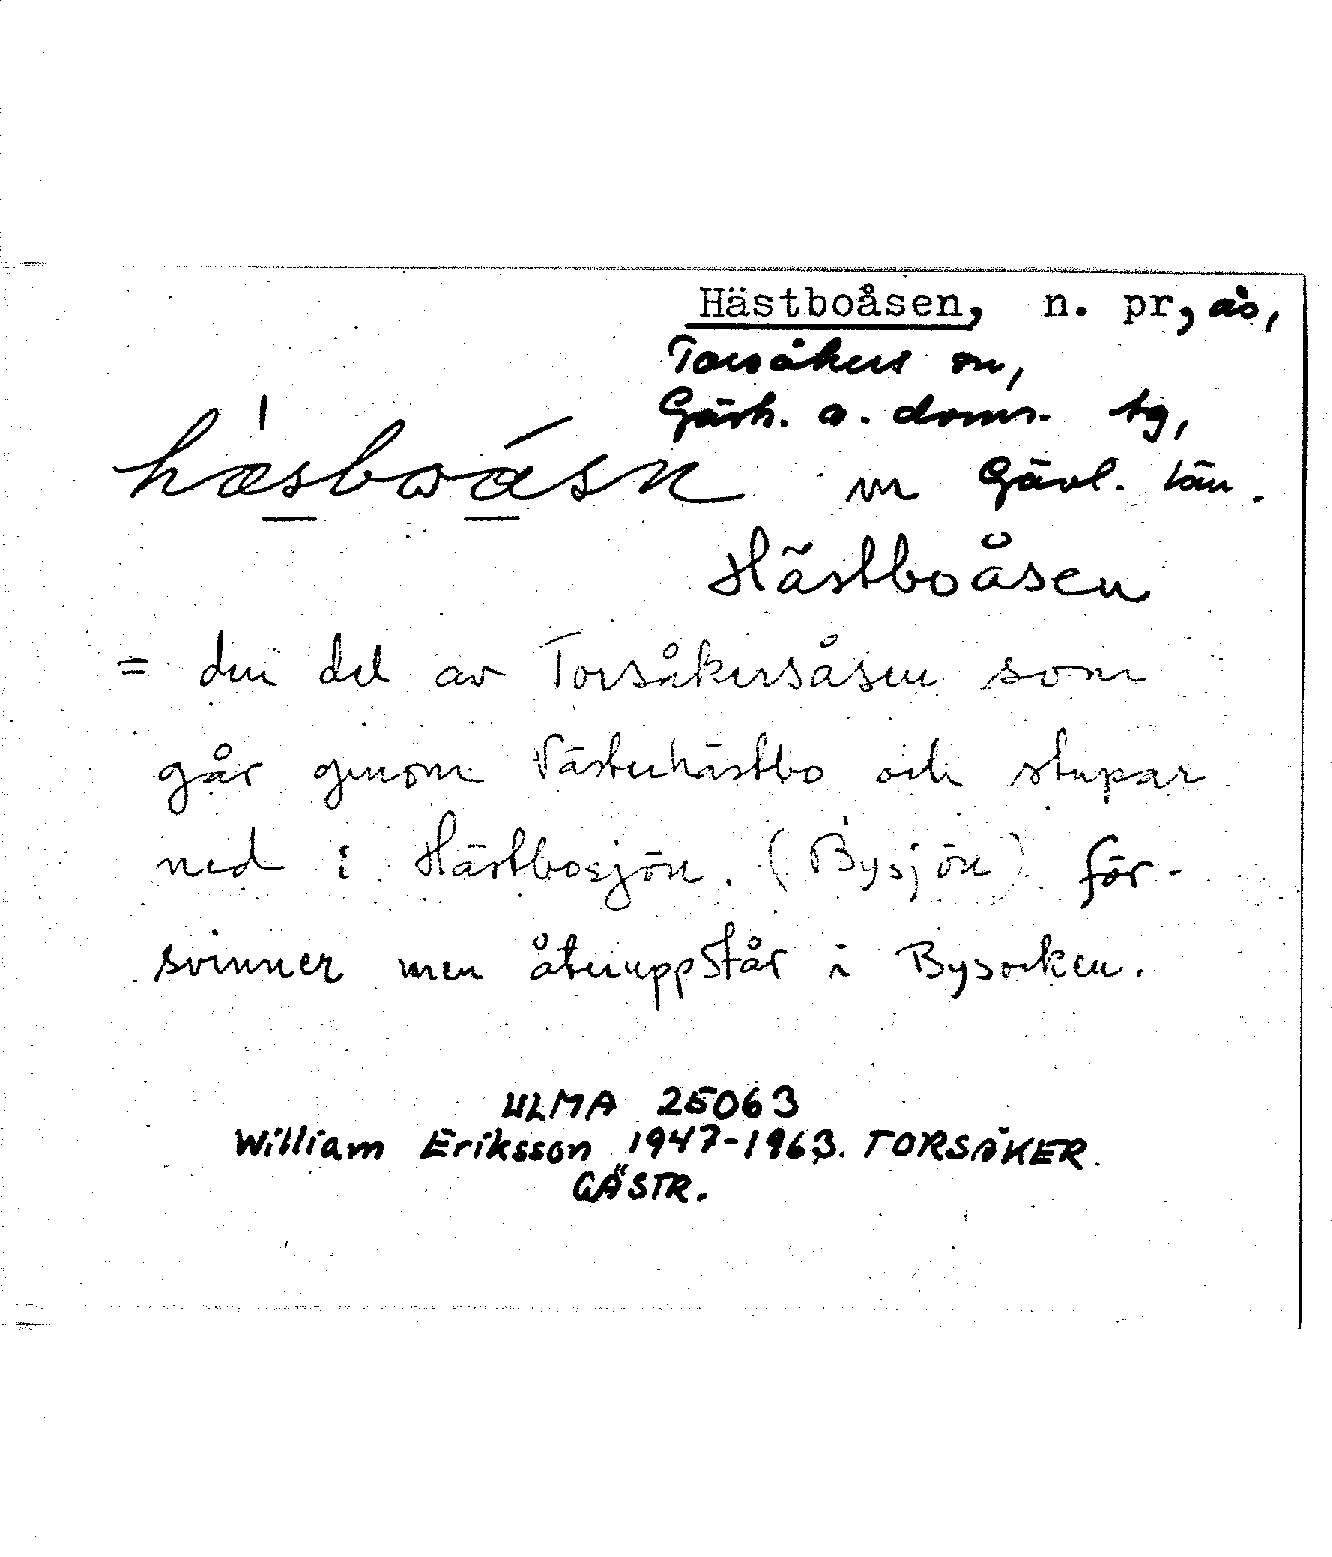 Hästboåsen, n. pr, ås,
Torsåkers sn,
Gästr. ö. doms. tg,
Gävl. län.
hæsbωásn m
Hästboåsen
= den del av Torsåkersåsen som
går genom Västerhästbo och stupar
ned i Hästbosjön. (Bysjön) för-
svinner men återuppstår i Bysocken.
ULMA 25063
William Eriksson 1947-1963. TORSÅKER
GÄSTR.